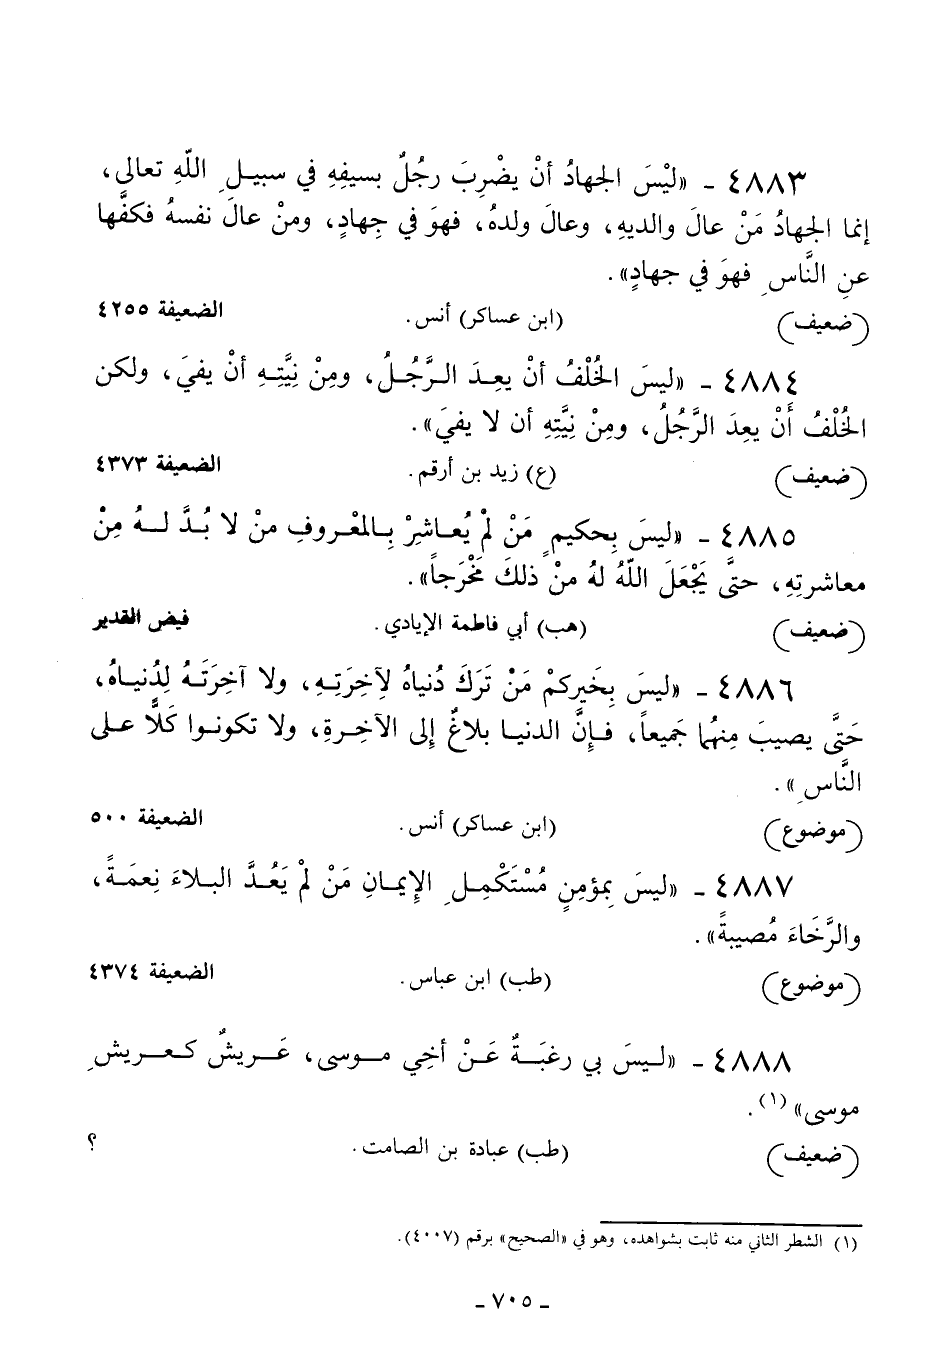 ٤٨٨٣ - «ليْسَ الجهادُ أنْ يضْرِبَ رجُلٌ بسيفِهِ في سبيلِ اللّهِ تعالى،
إنما الجهادُ مَنْ عالَ والديهِ، وعالَ ولدهُ، فهوَ في جِهادٍ، ومنْ عالَ نفسهُ فكفَّها
عنِ النَّاسِ فهوَ في جهادٍ».
(ضعيف) (ابن عساكر) أنس. الضعيفة ٤٢٥٥
٤٨٨٤ - «ليسَ الخُلْفُ أنْ يعِدَ الرَّجُلُ، ومِنْ نِيَّتِهِ أنْ يفيَ، ولكن
الخُلْفُ أَنْ يعِدَ الرَّجُلُ، ومِنْ نِيَّتِهِ أن لا يفيَ».
(ضعيف) (ع) زيد بن أرقم. الضعيفة ٤٣٧٣
٤٨٨٥ - «ليسَ بِحكيمٍ مَنْ لمْ يُعاشِرْ بِالمعْروفِ منْ لا بُدَّ لهُ مِنْ
معاشرتِهِ، حتىَّ يَجْعَلَ اللّهُ لهُ منْ ذلكَ مَخْرَجاً».
(ضعيف) (هب) أبي فاطمة الإيادي. فيض القدير
٤٨٨٦ - «ليسَ بِخَيرِكمْ مَنْ تَرَكَ دُنياهُ لآخِرَتِهِ، ولا آخِرَتَهُ لِدُنياهُ،
حَتَّى يصيبَ مِنهُما جَميعاً، فإنَّ الدنيا بلاغٌ إلى الآخِرةِ، ولا تكونوا كَلًّا على
النَّاسِ».
(موضوع) (ابن عساكر) أنس. الضعيفة ٥٠٠
٤٨٨٧ - «ليسَ بِمؤمِنٍ مُسْتَكْمِلِ الإيمانِ مَنْ لمْ يَعُدَّ البلاءَ نِعمَةً،
والرَّخَاءَ مُصيبةً».
(موضوع) (طب) ابن عباس. الضعيفة ٤٣٧٤
٤٨٨٨ - «ليسَ بي رغبَةٌ عَنْ أخِي موسى، عَريشٌ كعريشِ
موسى» (١).
(ضعيف) (طب) عبادة بن الصامت. ؟
(١) الشطر الثاني منه ثابت بشواهده، وهو في «الصحيح» برقم (٤٠٠٧).
- ٧٠٥ -